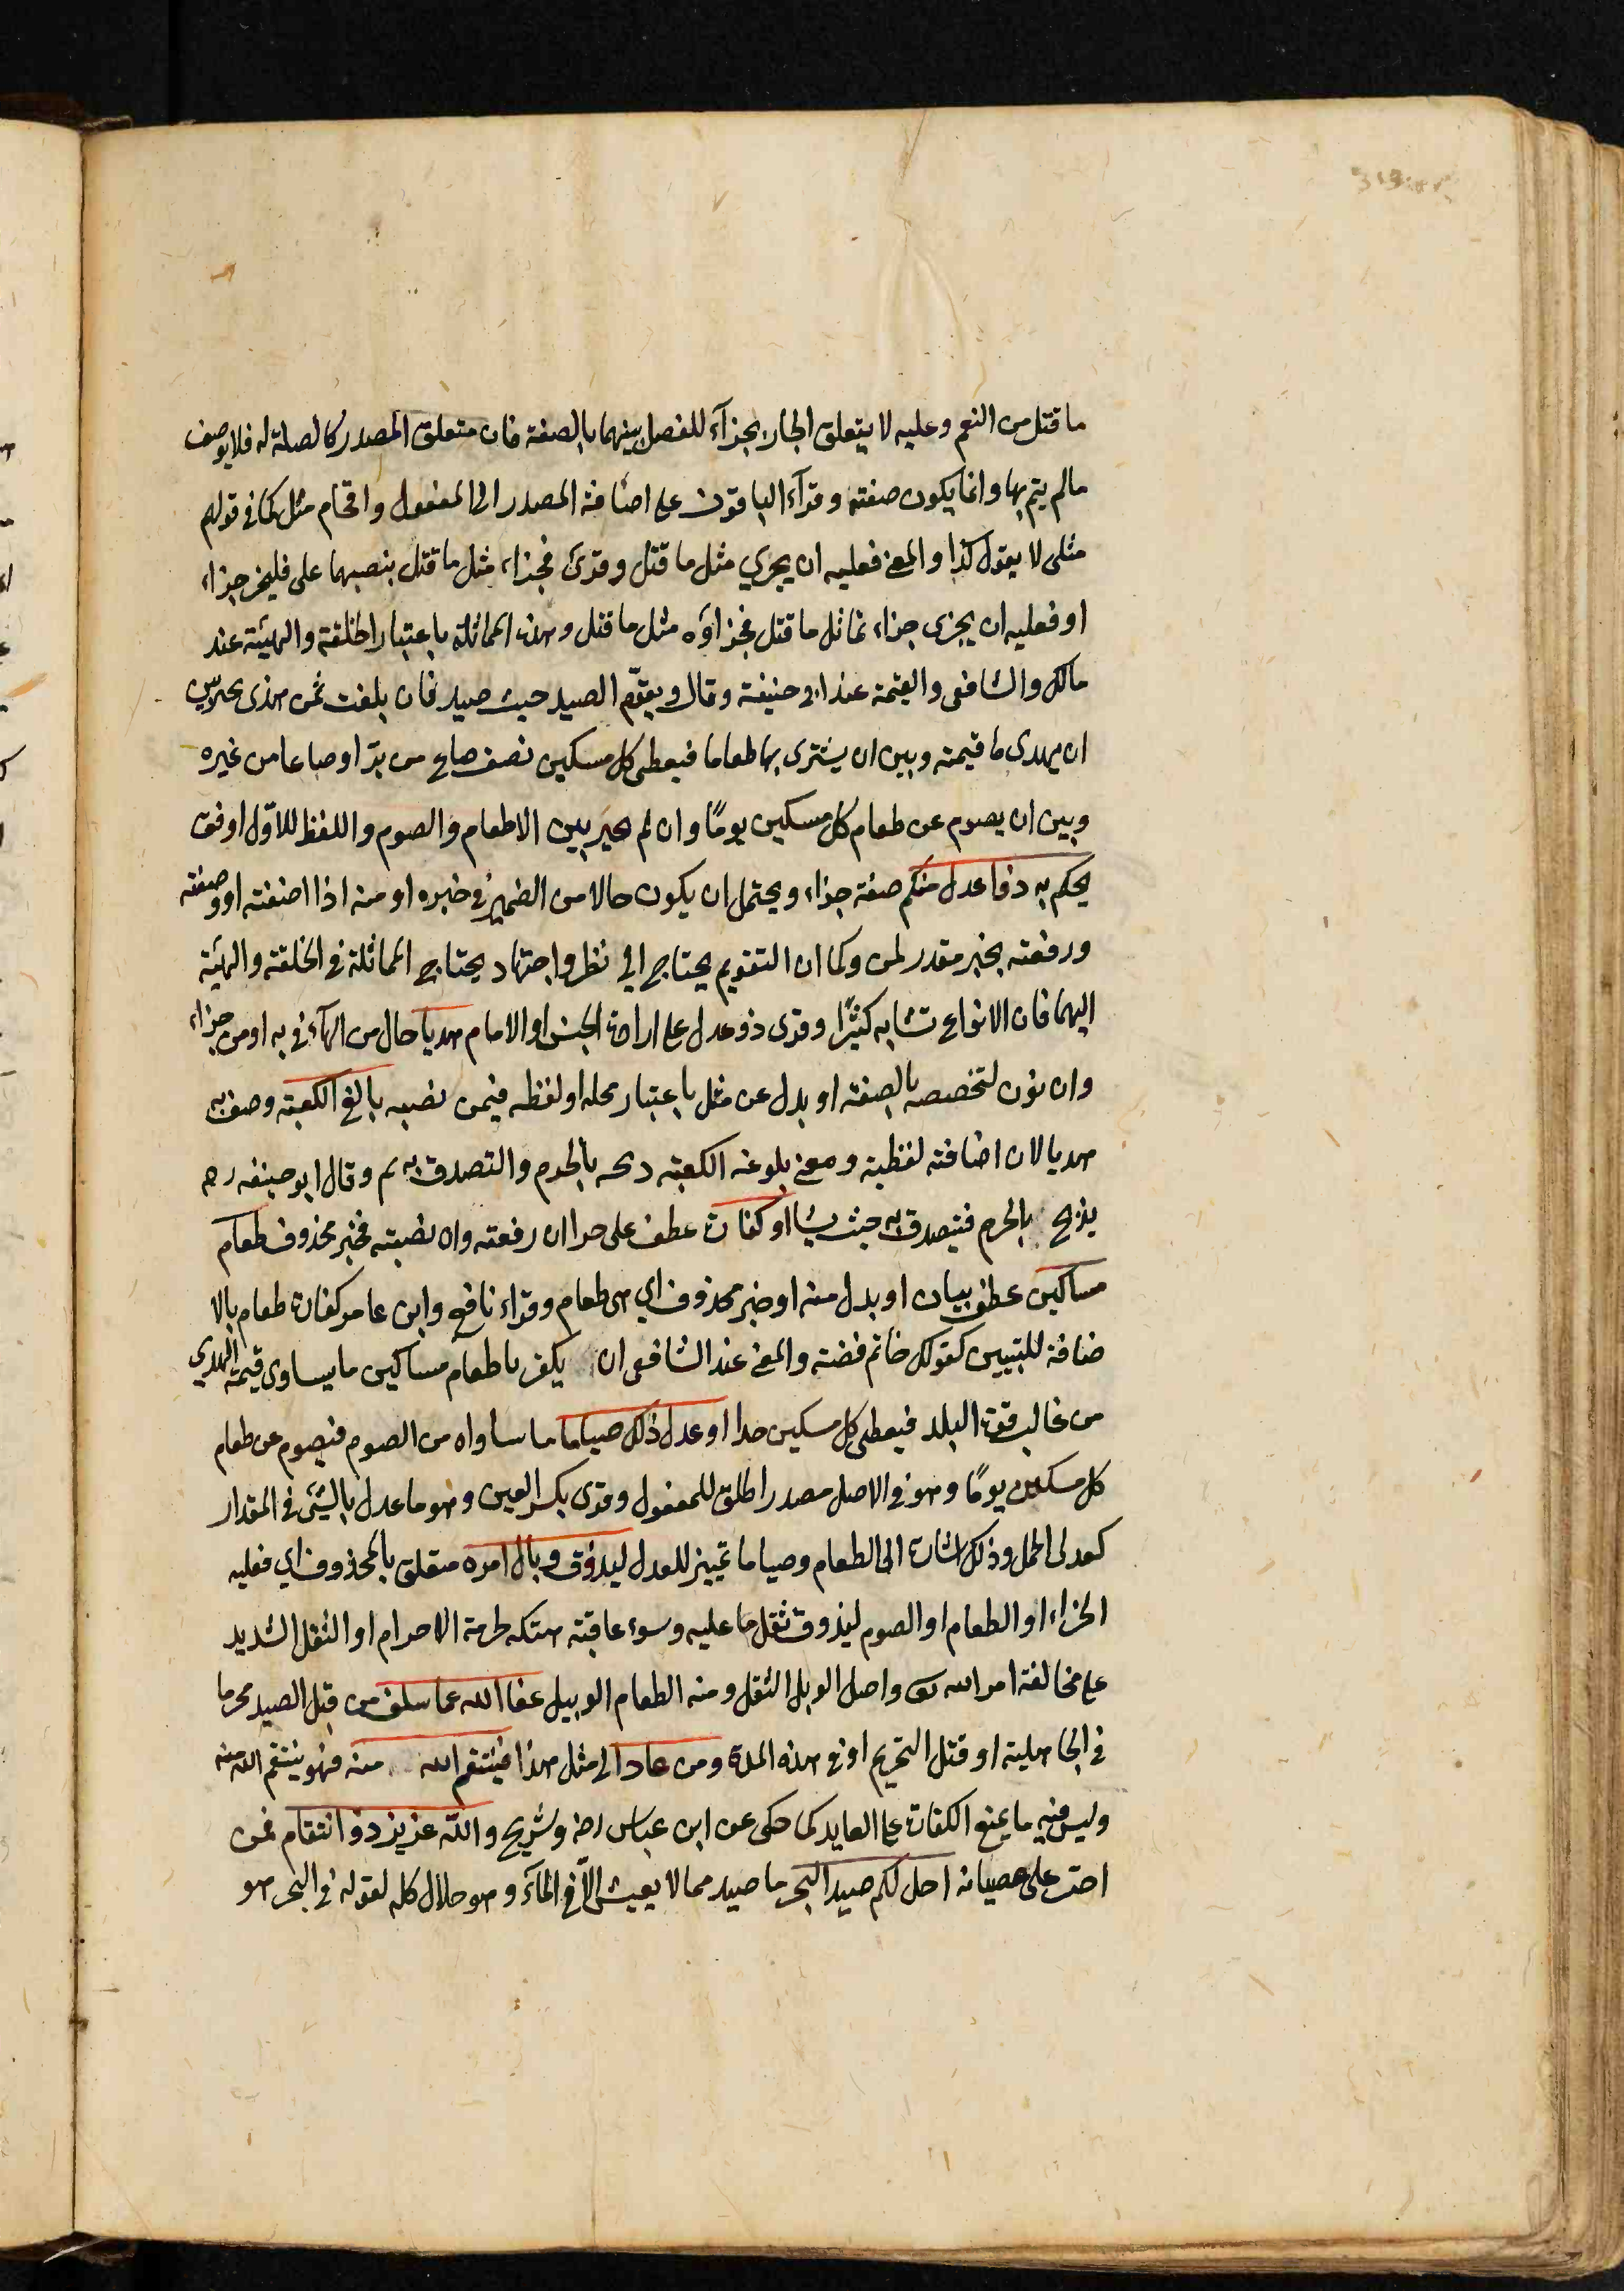 ما قتل من النعم وعليه لا يتعلق الجار بجزآء للفصل بينهما بالصفة فان متعلق المصدر كالصلة له فلا يوصف
مالم يتم بها وانما يكون صفته وقرآء الباقون على اضافة المصدر الى المفعول واقحام مثل كما في قولهم
مثلى لا يقول كذا والمعنى فعليه ان يجزي مثل ما قتل وقرئ فجزاء مثل ما قتل بنصبهما على فليجز جزاء
او فعليه ان يجزى جزاء تماثل ما قتل فجزاؤه مثل ما قتل وهذه المماثلة باعتبار الخلقة والهيئة عند
مالك والشافعى والقيمة عند ابى حنيفة وقال ويقوّم الصيد حيث صيد فان بلغت ثمن هدى يخير بين
ان يهدى ما قيمته وبين ان يشترى بها طعاما فيعطى كل مسكين نصف صاع من برّ او صاعا من غيره
وبين ان يصوم عن طعام كل مسكين يومًا وان لم يخير بين الاطعام والصوم واللفظ للاوّل اوفق
يحكم به ذوا عدل منكم صفة جزاء ويحتمل ان يكون حالا من الضمير في خبره او منه اذا اضفته او وصفته
ورفعته بخبر مقدر لمن وكما ان التقويم يحتاج الى نظر واجتهاد يحتاج المماثلة في الخلقة والهيئة
اليهما فان الانواع تشابه كثيرًا وقرى ذو عدل على ارادة الجنس او الامام هديا حال من الهآء في به او من جزاء
وان نون لتخصصه بالصفة او بدل عن مثل باعتبار محله او لفظه فيمن نصبه بالغ الكعبة وصف به
هديا لان اضافته لفظية ومعنى بلوغه الكعبة ذبحه بالحرم والتصدق به ثم وقال ابو حنيفه رحه
يذبح بالحرم فيتصدق به حيث شا او كفارة عطف على جزا ان رفعته وان نصبته فخبر محذوف طعام
مساكين عطف بيان او بدل منه او خبر محذوف اي هى طعام وقراء نافع وابن عامر كفارة طعام بالا
ضافة للتبيين كقولك خاتم فضة والمعنى عند الشافعى ان يكفر باطعام مساكين ما يساوى قيمة الهدي
من غالب قوت البلد فيعطى كل مسكين مدا او عدل ذلك صياما ما ساواه من الصوم فيصوم عن طعام
كل مسكين يومًا وهو في الاصل مصدر اطلق للمفعول وقرى بكسر العين وهو ما عدل بالشئ في المقدار
كعدلى الحمل وذلك اشارة الى الطعام وصياما تمييز للعدل ليذوق وبال امره متعلق بالمحذوف اي فعليه
الجزاء او الطعام او الصوم ليذوق ثقل ما عليه وسوء عاقبته هتكه لحرمة الاحرام او الثقل الشديد
على مخالفة امر الله تعالى واصل الوبل الثقل ومنه الطعام الوبيل عفا الله عما سلف من قتل الصيد محرما
في الجاهلية او قتل التحريم او في هذه المدة ومن عاد الى مثل هذا فينتقم الله منه فهو ينتقم الله منه
وليس فيه ما يمنع الكفارة على العايد كما حكى عن ابن عباس رض وشريح والله عزيز ذو انتقام ممن
اصر على عصيانه احل لكم صيد البحر ما صيد مما لا يعيش الّا في المآء وهو حلال كله لقوله في البحر هو